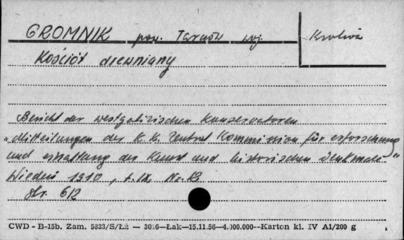 GROMNIK pow. Tarnów woj. Kraków
Kościół drewniany
Bericht der westgalizischen Konservatoren
"Mitteilungen der K. K. Zentral Kommission für erforschung
und erhaltung der Kunst und historischen Denkmale"
Wiedeń 1910, t. IX, No. 13
Str. 612
CWD - B-15b. Zam. 5823/S/Łż — 3016—Łak—15.11.56—4.000.000—Karton kl. IV A1/200 g